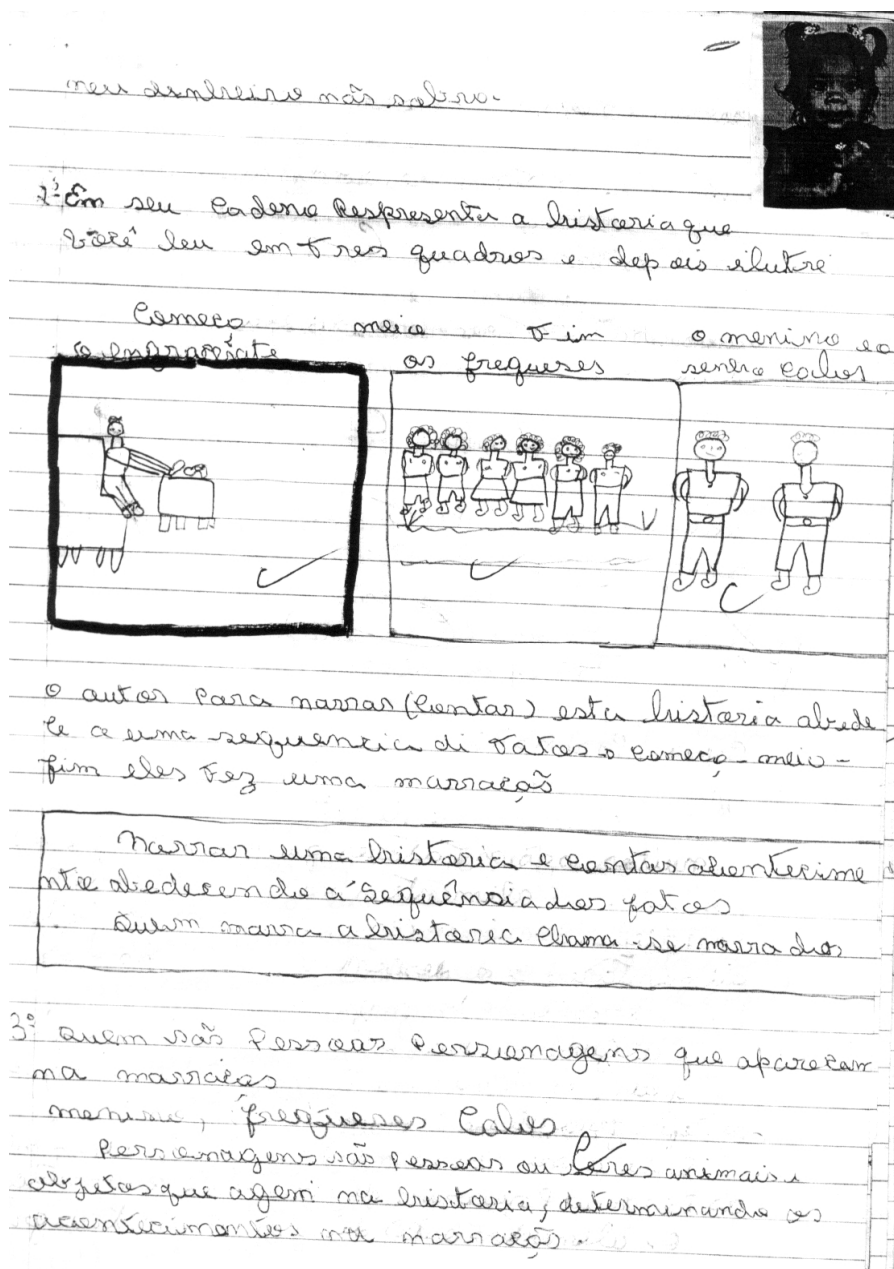 meu dinheiro não sobro.
2ª Em seu caderno Respresenta a historia que
você leu em tres quadros e depois ilutre
Começo meio Fim o menino e o
o engraxate os fregueses senho calos
o autor para narrar (contar) esta historia obede
ce a uma sequencia di Fatos o começo - meio -
fim eles Fez uma narração
Narrar uma historia e contar acontecime
nto obedecendo a sequência dos fatos
Quem narra a historia chama-se narrador
3º Quem são Pessoas Personagens que aparecam
na narração
menino, fregueses Calos
Personagens são pessoas ou seres animais e
objetos que agem na historia, determinando os
acontecimentos na narração.